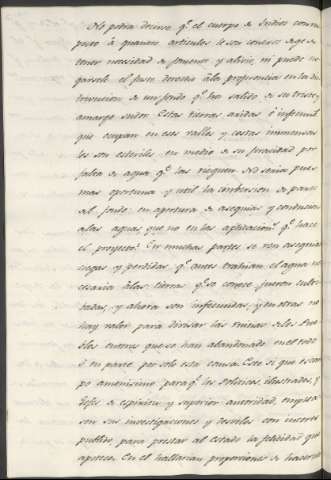 No podia decirse q.e el cuerpo de Indios con
puro á quantos articulos le son
tener necesidad de fomento y alivio, ni puede ne
garsele el justo derecho á la preferencia en la dis
tribucion de un fondo q.e ha salido de su triste, y
amargo sudor. Estas tierras aridas é
que ocupan en estos valles y costas inmensas
les son esteriles en medio de su feracidad por
falta de agua q.e las rieguen. No seria pues
mas oportuna y util la conversion de parte
del fondo en apertura de asequias y
á las aguas que no en la aplicacion q.e hace
el proyecto? En muchas partes se ven asequias
ciegas y perdidas q.e antes trahian el agua ne
cesaria á las tierras q.e se conoce fueron culti
tadas, y ahora son infecundas, y en otras no
hay valor para divisar las ruinas de los Pue
blos enteros que se han abandonado en el todo
ó en parte por sola esta causa. Este si que es cam
po amenisimo para q.e los Politicos, ilustrados, y
Gefes de espiritu y superior autoridad, empleen
son sus investigaciones y desvelos con
publico, para prestar al estado la felicidad que
apetece. En el hallarian proporciones de hacer